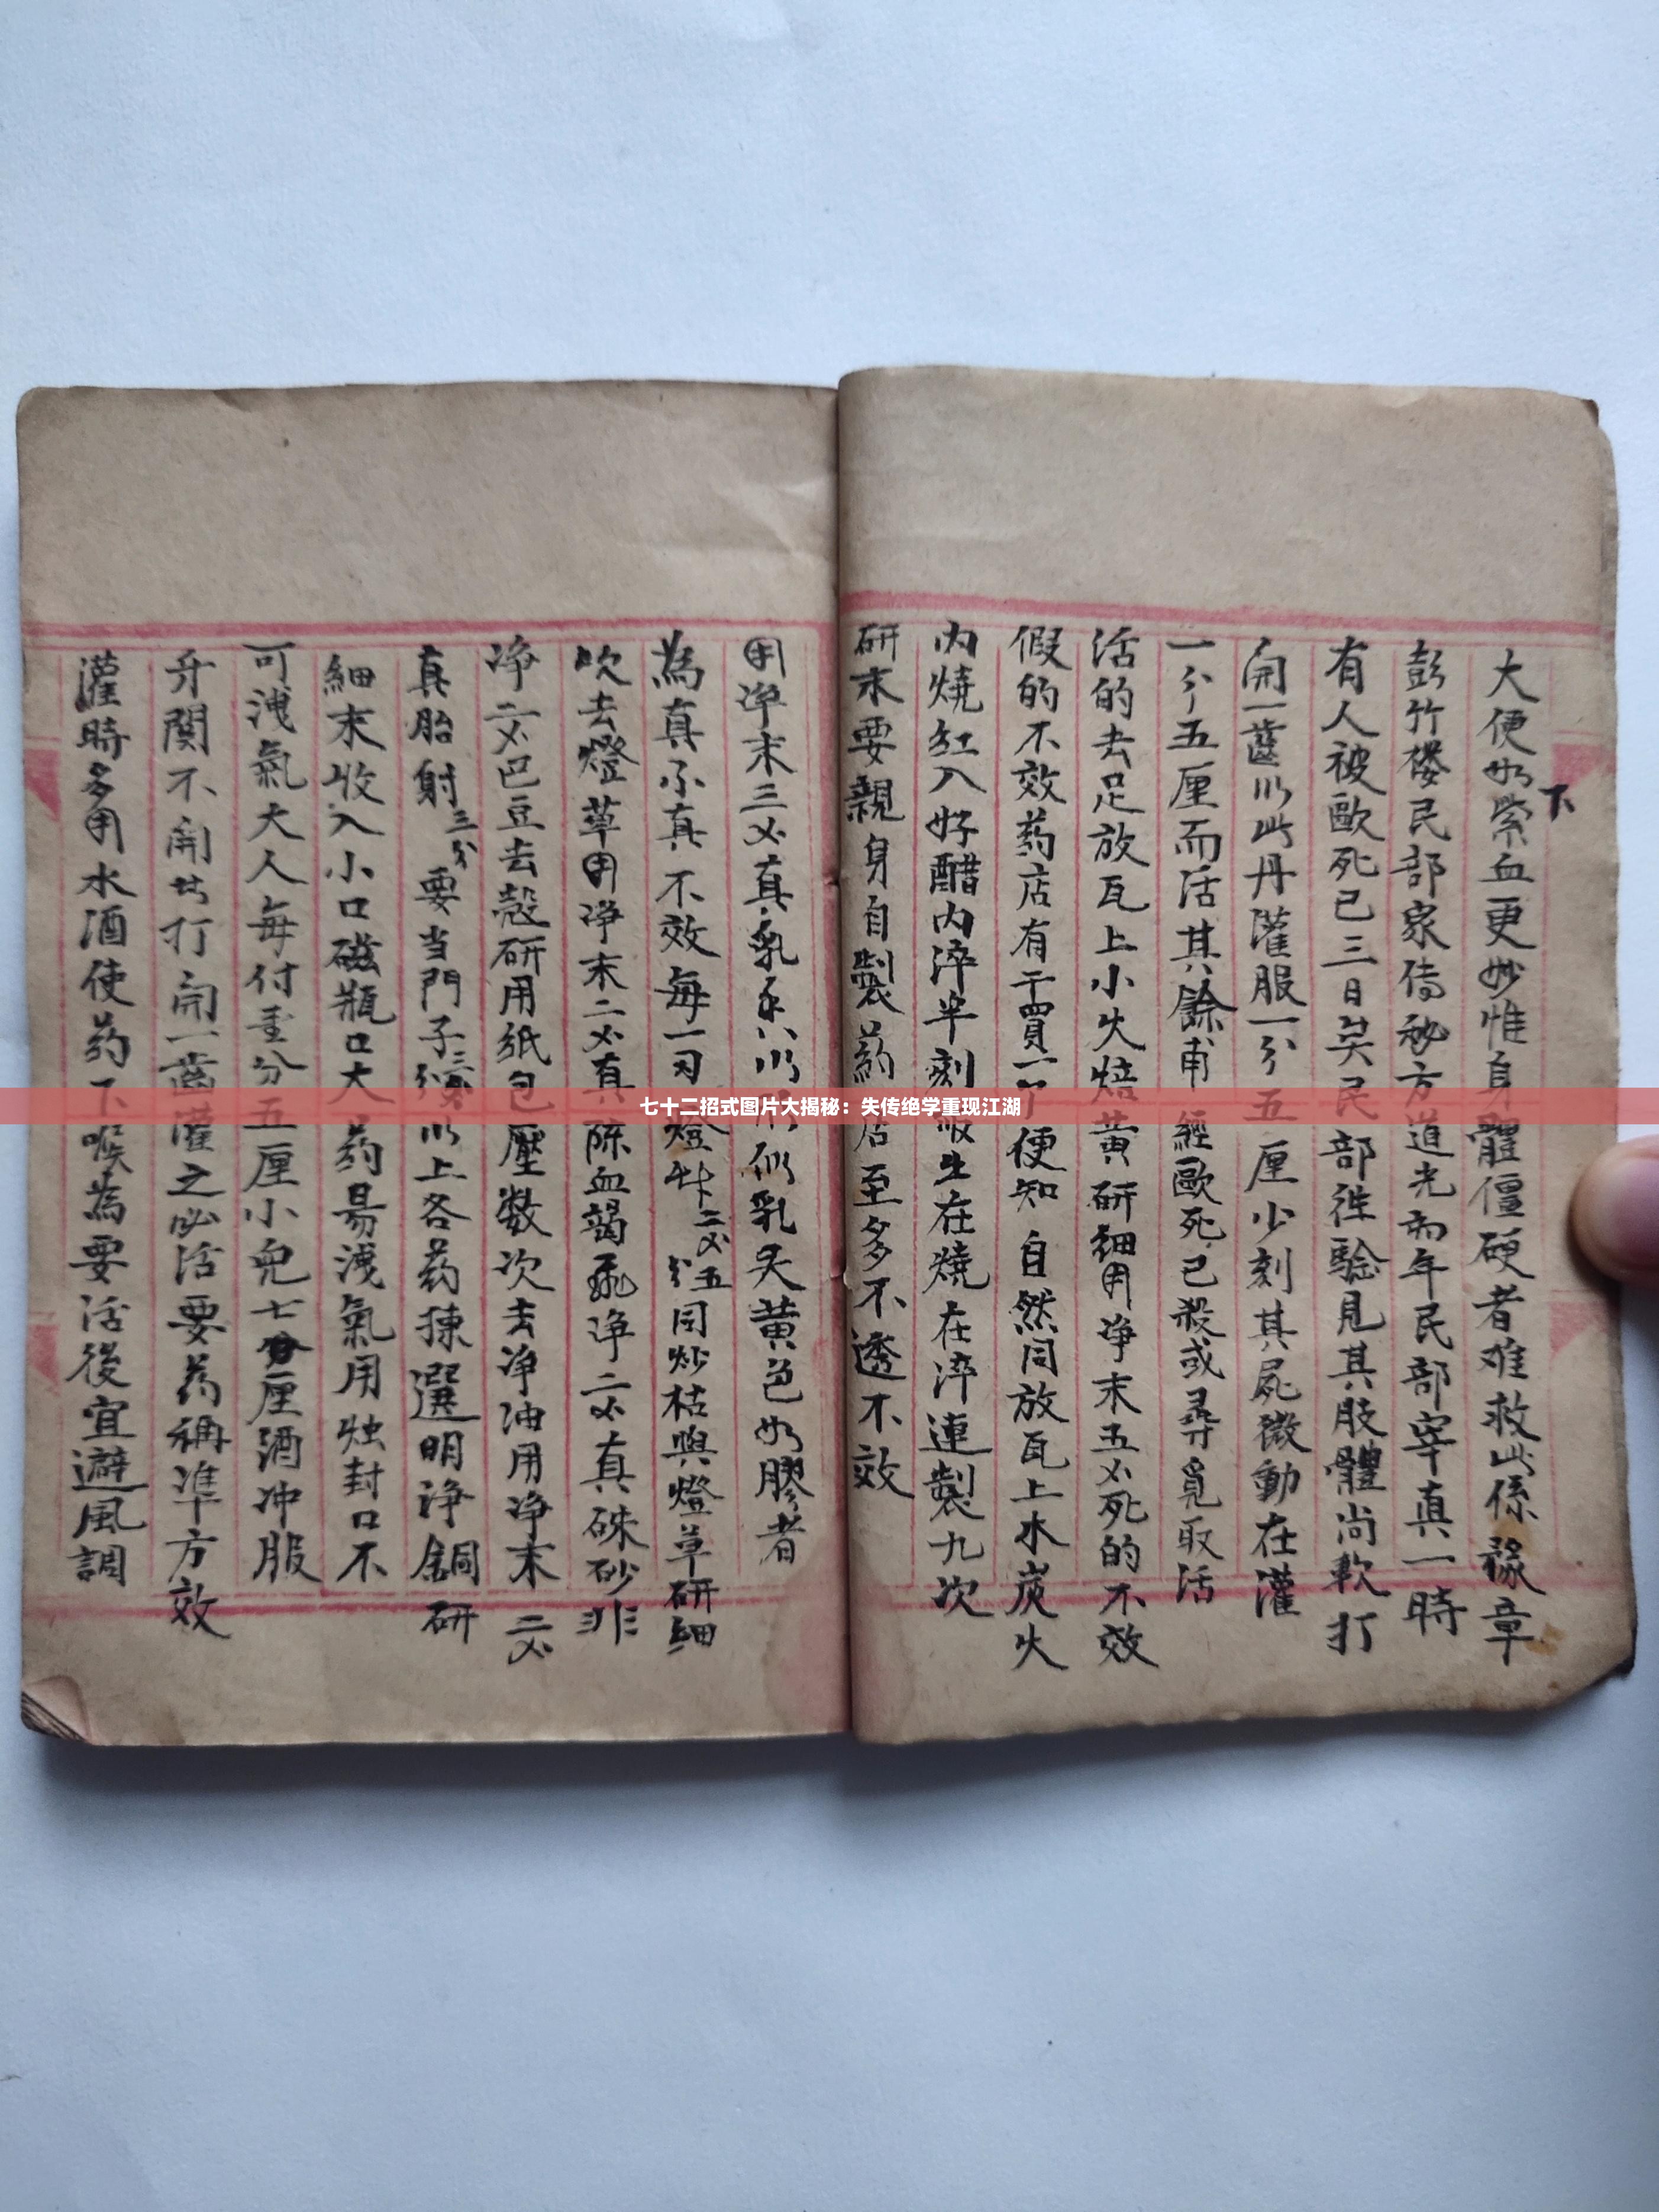 大便如紫血更妙惟身體僵硬者难救此係豫章
下
彭竹楼民部家传秘方道光年民部宰真一時
有人被歐死已三日矣民部徃驗見其肢體尚軟打
開一齒以此丹灌服一分五厘少刻其屍微動在灌
一分五厘而活其餘甫經歐死已殺或尋覓取活
活的去足放瓦上小火焙黄研细用净末五死的不效
假的不效药店有干買一便知自然同放瓦上木炭火
内燒红入好醋内淬半刻生在燒在淬連製九次
研末要親身自製药店至多不透不效
用净末三真乳似乳灭黄色如膠者
為真不真不效每一灯二五分同炒枯與燈草研細
吹去燈草用净末二真陈血竭净二真硃砂
净二巴豆去殼研用纸包壓数次去净油用净末二
真胎射三分要当門子以上各药揀選明净銅研
細末收入小口磁瓶口大药易洩氣用烛封口不
可洩氣大人每付壹分五厘小兒七厘酒冲服
牙関不開打開一齒灌之必活要药稱準方效
灌時多用水酒使药下喉為要活後宜避風調
七十二招式图片大揭秘：失传绝学重现江湖